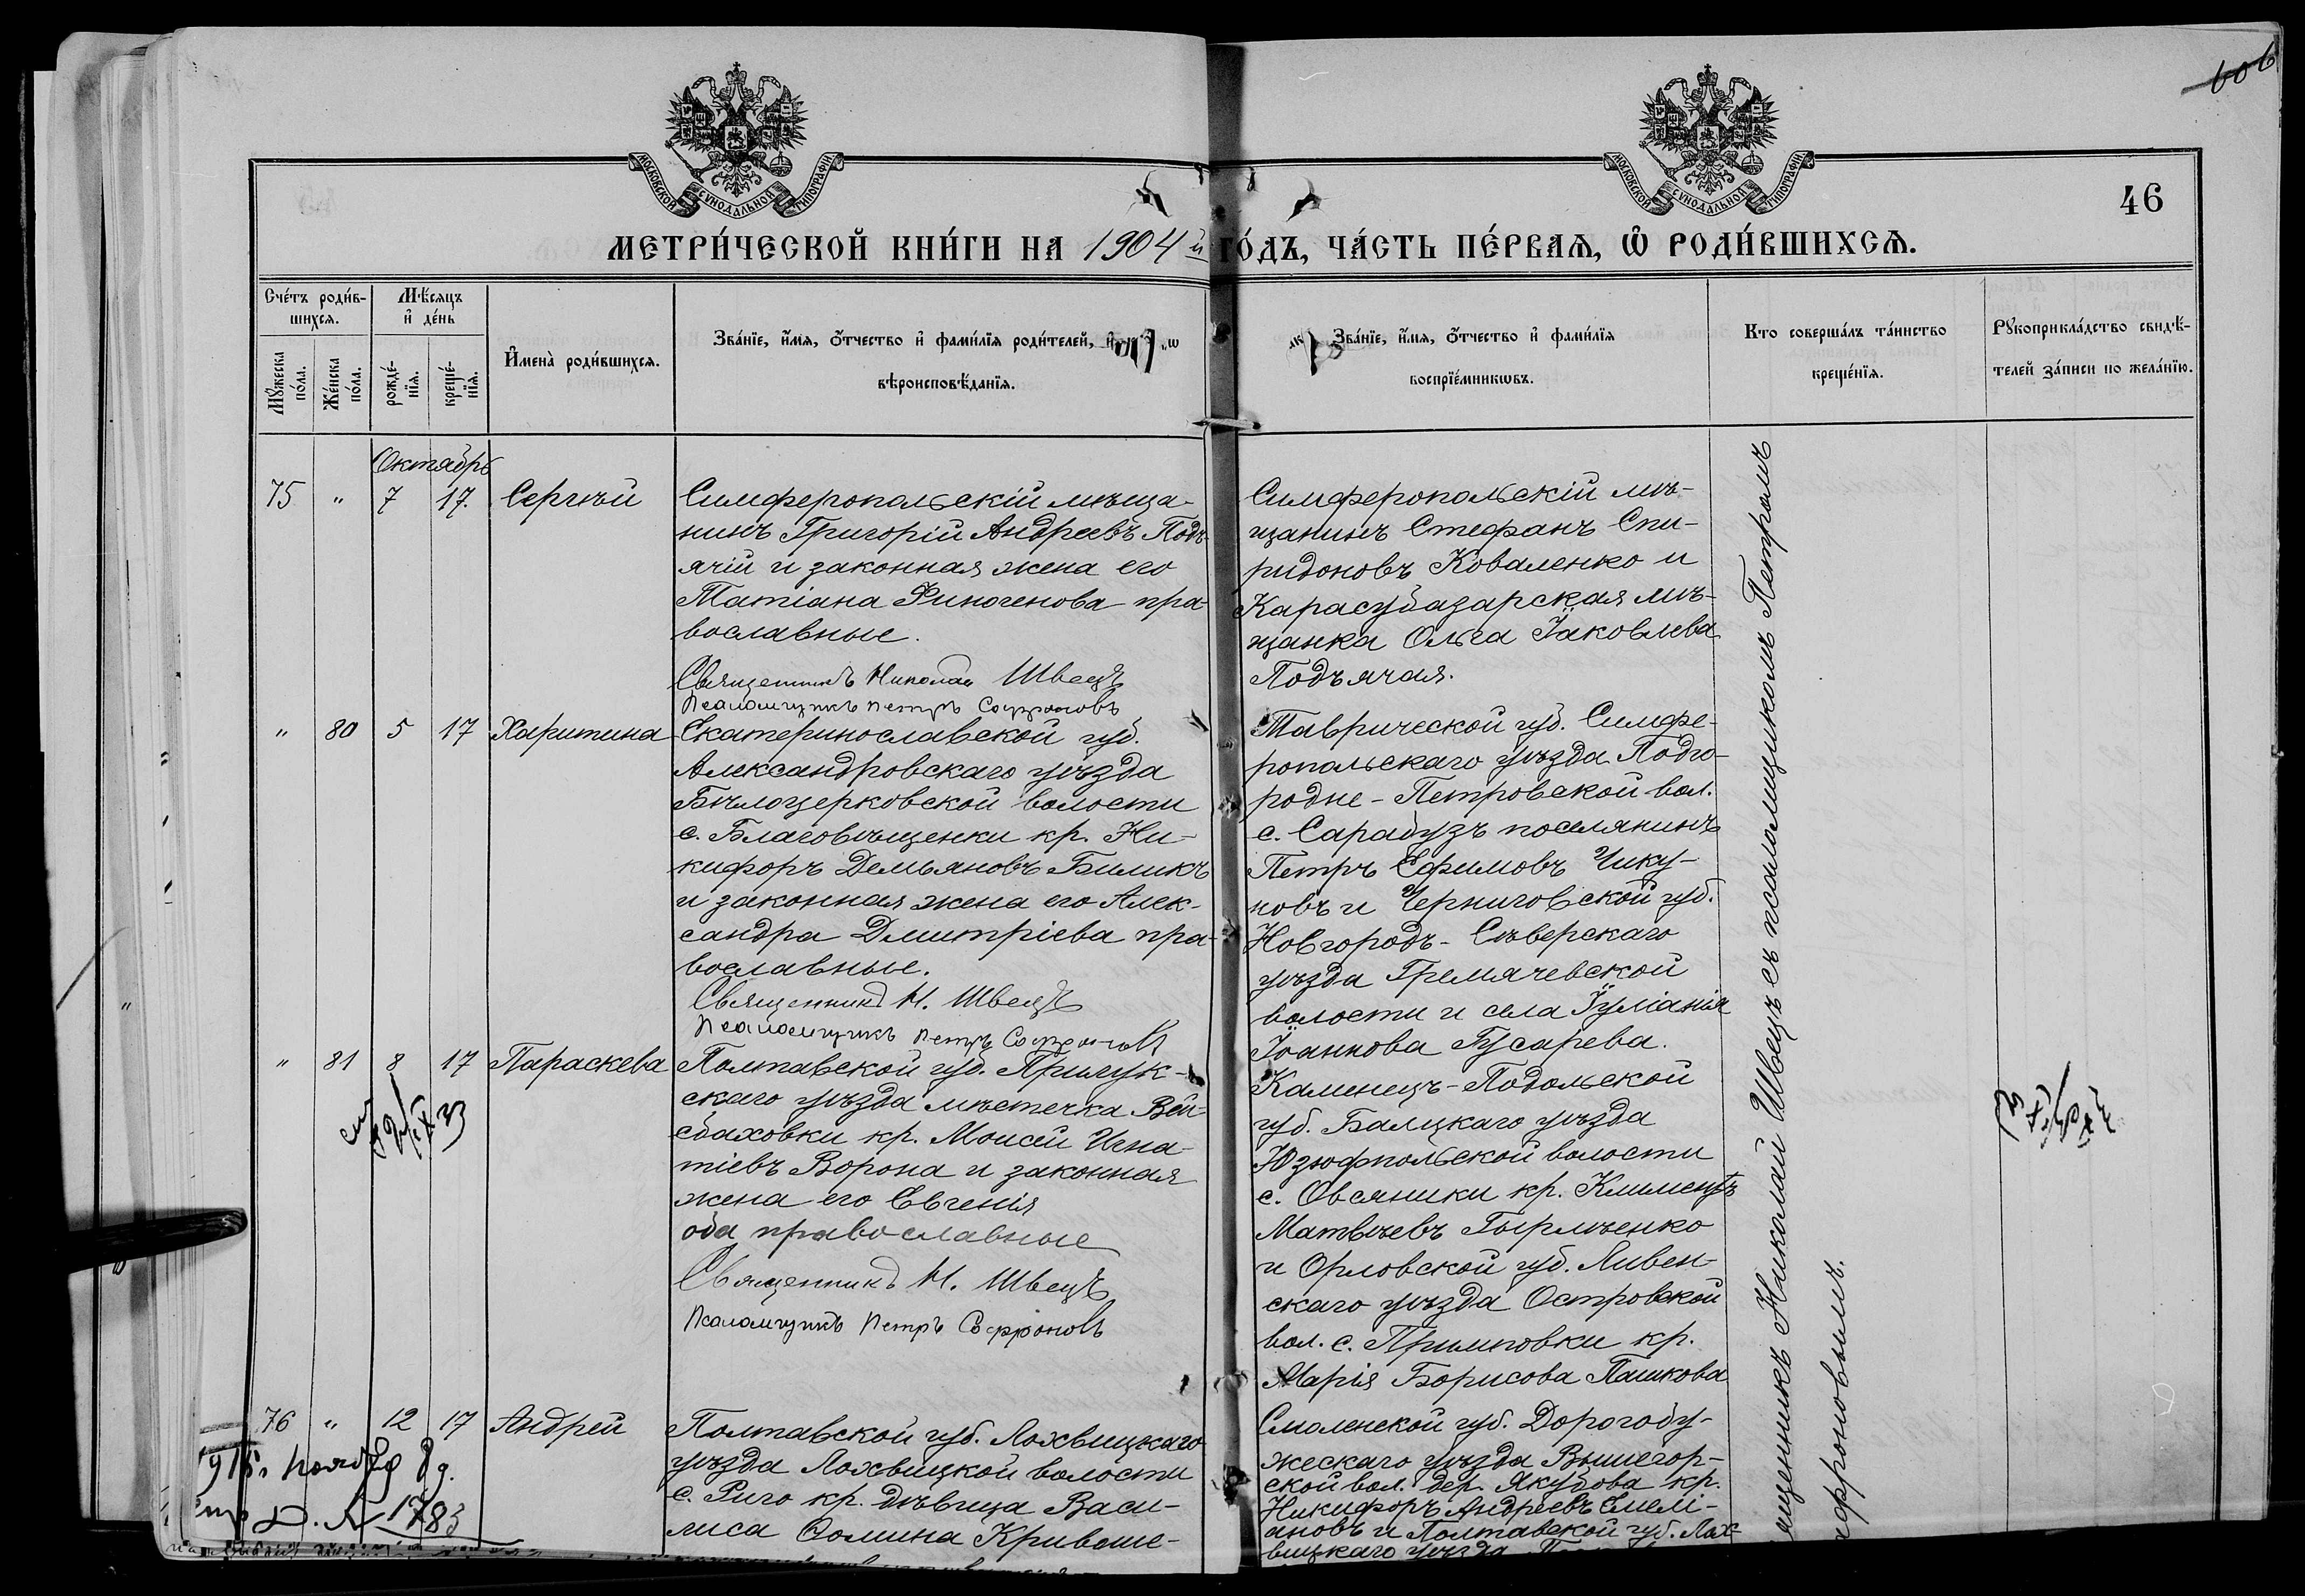 606
МОСКОВСКОЙ СѴНОДАЛЬНОЙ ТИПОГРАФІИ
МОСКОВСКОЙ СѴНОДАЛЬНОЙ ТИПОГРАФІИ
46
МЕТРИ́ЧЕСКОЙ КНИ́ГИ НА 1904й ГО́ДЪ, ЧА́СТЬ ПЕ́РВАѦ, Ѡ҆ РОДИ́ВШИХСѦ.
Сче́тъ роди́в-
шихсѧ.
Мѣ́сяцъ
и҆ де́нь
Мꙋ́жеска
по́ла.
Же́нска
по́ла.
рожде́-
нїѧ.
креще́-
нїѧ.
И҆мена̀ роди́вшихсѧ.
Зва́нїе, и҆́мѧ, ѻ҆́тчество и҆ фами́лїѧ роди́телей, и҆
вѣроисповѣ́данїѧ.
Зва́нїе, и҆́мѧ, ѻ҆́тчество и҆ фами́лїѧ
воспрїе́мникѡвъ.
Кто соверша́лъ та́инство
креще́нїѧ.
Рꙋкоприкла́дство свидѣ́-
телей за́писи по жела́нїю.
Октябрь
75 " 7 17. Сергѣй
Симферопольскій мѣща-
нинъ Григорій Андреевъ Подъ-
ячій и законная жена его
Татіана Финогенова пра-
вославные.
Священникъ Николай Швецъ
Псаломщикъ Петръ Софроновъ
Симферопольскій мѣ-
щанинъ Стефанъ Спи-
ридоновъ Коваленко и
Карасубазарская мѣ-
щанка Ольга Іаковлева
Подъячая.
" 80 5 17 Харитина
Екатеринославской губ.
Александровскаго уѣзда
Бѣлоцерковской волости
с. Благовѣщенки кр. Ни-
кифоръ Демьяновъ Биликъ
и законная жена его Алек-
сандра Дмитріева пра-
вославные.
Священникъ Н. Швецъ
Псаломщикъ Петръ Софроновъ
Таврической губ. Симфе-
ропольскаго уѣзда Подго-
родне-Петровской вол.
с. Сарабузъ поселянинъ
Петръ Ефимовъ Чику-
новъ и Черниговской губ.
Новгородъ-Сѣверскаго
уѣзда Гремячевской
волости и села Іуліанія
Іоаннова Гусарева.
" 81 8 17 Параскева
Полтавской губ. Прилук-
скаго уѣзда мѣстечка Вей-
сбаховки кр. Моисей Игна-
тіевъ Ворона и законная
жена его Евгенія
оба православные
Священникъ Н. Швецъ
Псаломщикъ Петръ Софроновъ
Каменецъ-Подольской
губ. Балцкаго уѣзда
Юзюфпольской волости
с. Овсяники кр. Климентъ
Матвѣевъ Гырменко
и Орловской губ. Ливен-
скаго уѣзда Островской
вол. с. кр.
Марія Борисова Пашкова
76 " 12 17 Андрей
Полтавской губ. Лохвицкаго
уѣзда Лохвицкой волости
с. Риго кр. дѣвица Васи-
лиса Ѳомина Кривоше-
Смоленской губ. Дорогобу-
жескаго уѣзда Вышегор-
ской вол. дер. Якубова кр.
Никифоръ Андреевъ Емелі-
ановъ и Полтавской губ. Лох-
вицкаго уѣзда
Николай Швецъ съ псаломщикомъ Петромъ
1783